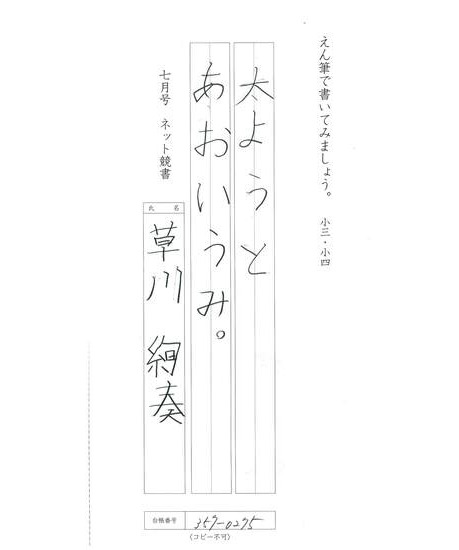 えん筆で書いてみましょう。 小三・小四
太ようと
あおいうみ。
七月号 ネット競書
氏名
草川 絢奏
合格番号 359-0295
(コピー不可)